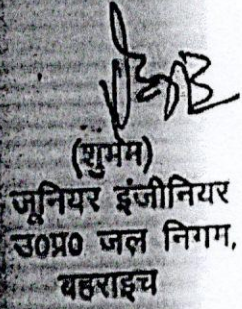 (शुभम)
जूनियर इंजीनियर
उ0प्र0 जल निगम,
बहराइच